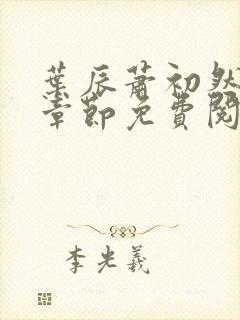 葉辰蕭初然
章節免費閱
李光羲